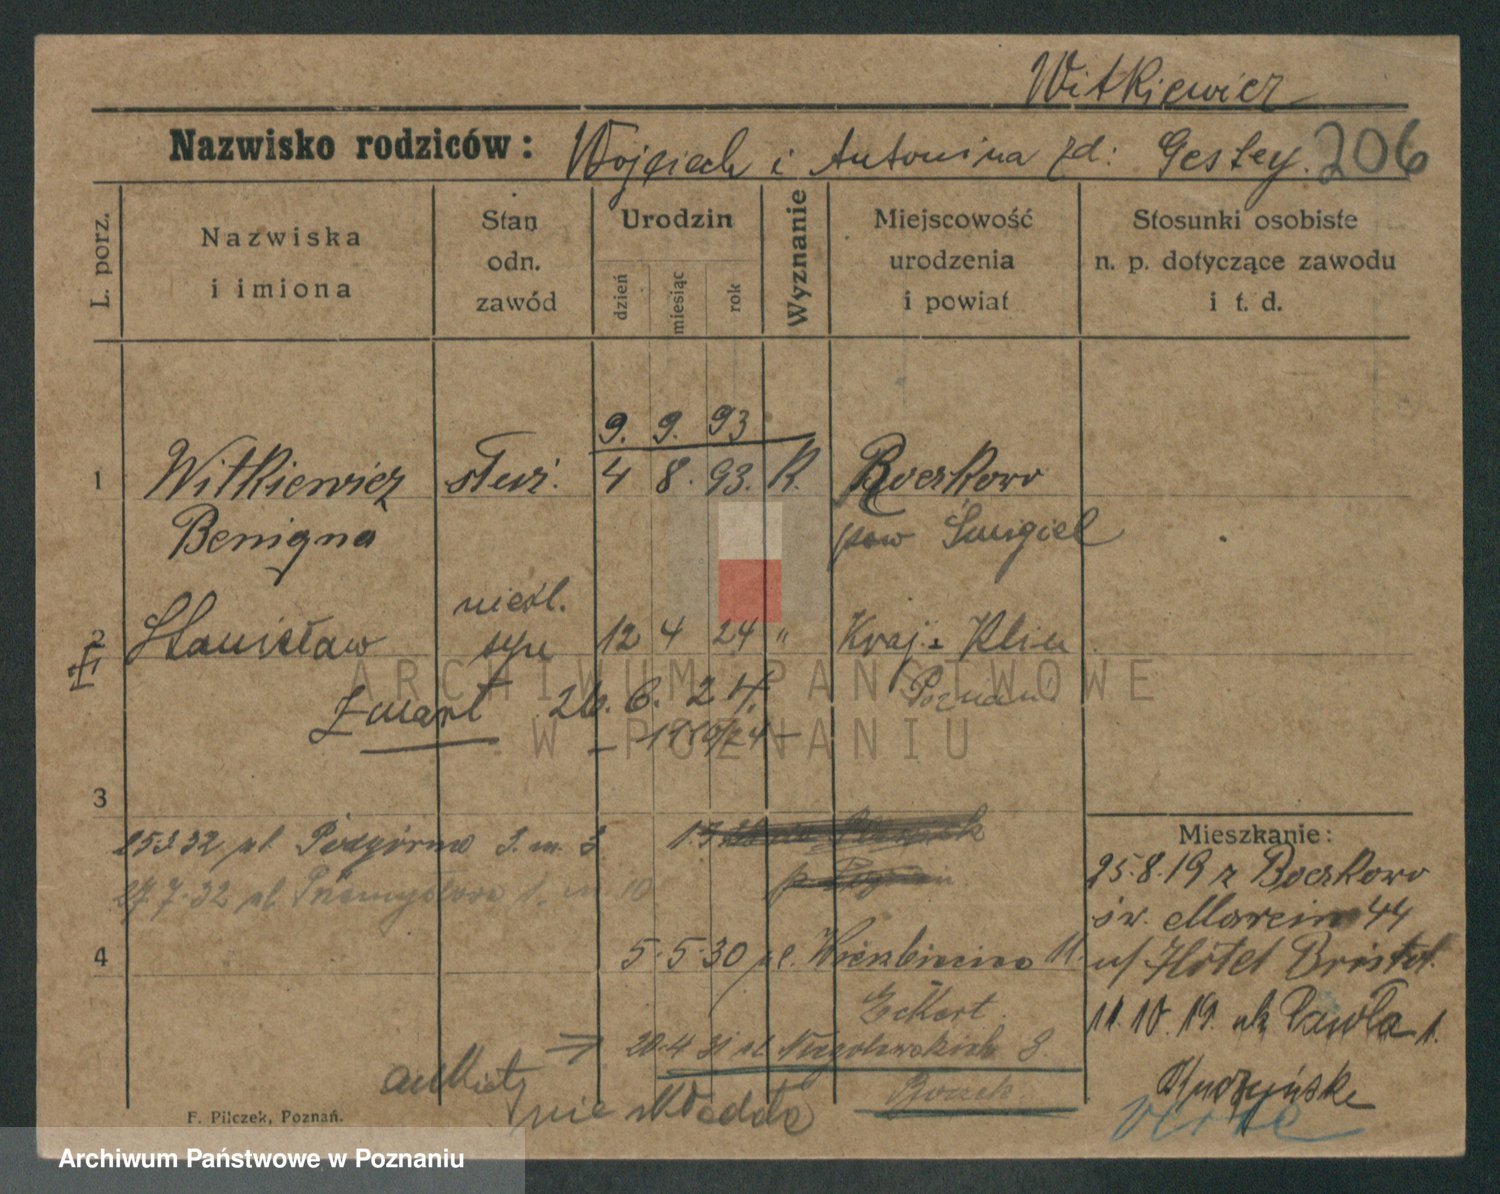 Witkiewicz
Nazwisko rodziców: Wojciech i Antonina zd: Gestey. 206
L. porz.
Nazwiska
i imiona
Stan
odn.
zawód
Urodzin
dzień
miesiąc
rok
Wyznanie
Miejscowość
urodzenia
i powiat
Stosunki osobiste
n. p. dotyczące zawodu
i t. d.
9. 9. 93
1 Witkiewicz służ. 4 8. 93. K. Boczkowo
Benigna pow Śmigiel
nieśl.
2 Stanisław syn 12 4 24 " Kraj. Klin
Poznań
Zmarł 26. 6. 24.
3
Mieszkanie:
25.3.32 pl. Podgórna 3. m. 3
27.7.32 pl. Przemysłowa 1. m 10
25.8.19 z Boczkowo
św. Marcin 44
4 5.5.30 pl. Wierzbięcice 11.
u/ Hotel Bristol.
Eckert
11.10.19. ul. Pawła 1.
20.4 31 pl. Niegolewskich 8.
ankiety
nie składała
F. Pilczek, Poznań.
ARCHIWUM PAŃSTWOWE
W POZNANIU
Archiwum Państwowe w Poznaniu